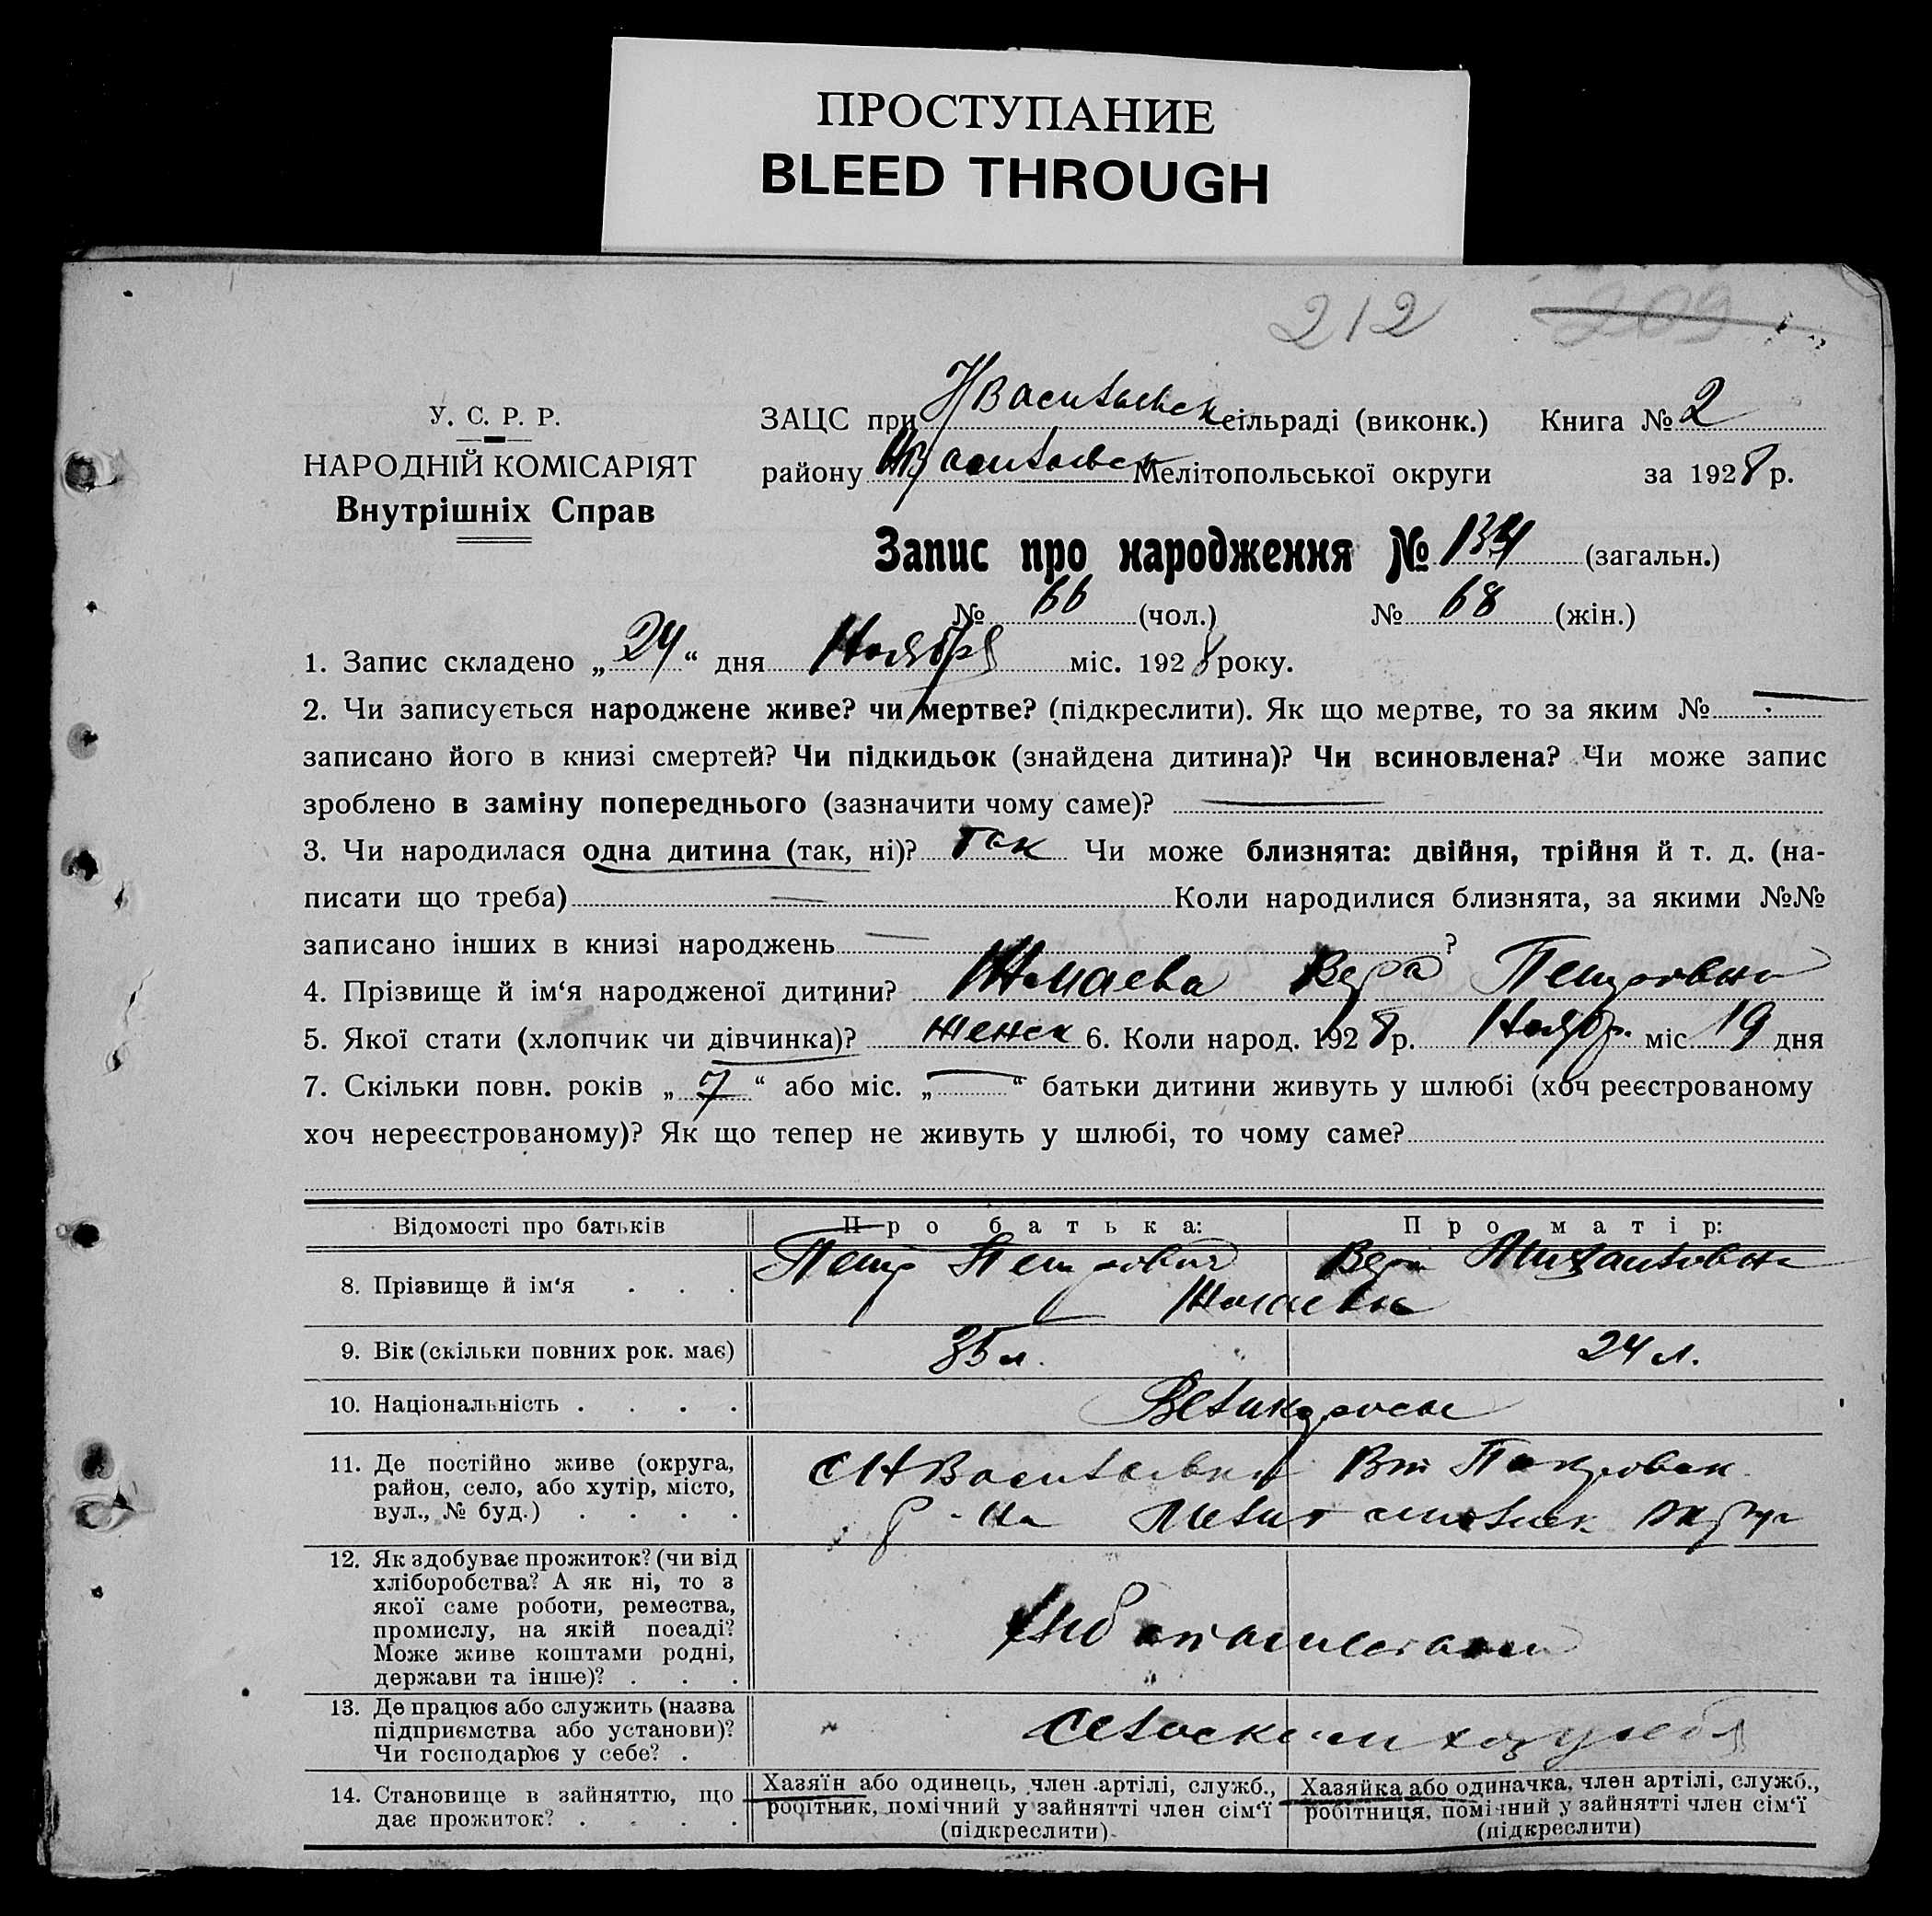 ПРОСТУПАНИЕ
BLEED THROUGH
212 209
У. С. Р. Р.
НАРОДНІЙ КОМІСАРІЯТ
Внутрішніх Справ
ЗАЦС при НВасильевск сільраді (виконк.) Книга № 2
району НВасильевск Мелітопольської округи за 1928 р.
Запис про народження № 134 (загальн.)
№ 66 (чол.) № 68 (жін.)
1. Запис складено „24“ дня Ноября міс. 1928 року.
2. Чи записується народжене живе? чи мертве? (підкреслити). Як що мертве, то за яким № —
записано його в книзі смертей? Чи підкидьок (знайдена дитина)? Чи всиновлена? Чи може запис
зроблено в заміну попереднього (зазначити чому саме)? —
3. Чи народилася одна дитина (так, ні)? так Чи може близнята: двійня, трійня й т. д. (на-
писати що треба) — Коли народилися близнята, за якими №№
записано інших в книзі народжень — ?
4. Прізвище й ім‘я народженої дитини? Вера Петровна
5. Якої стати (хлопчик чи дівчинка)? женск 6. Коли народ. 1928 р. Ноябр. міс 19 дня
7. Скільки повн. років „7“ або міс. „—“ батьки дитини живуть у шлюбі (хоч реєстрованому
хоч нереєстрованому)? Як що тепер не живуть у шлюбі, то чому саме?
Відомості про батьків Про батька: Про матір:
8. Прізвище й ім‘я . . . Петр Петрович Вера
9. Вік (скільки повних рок. має) 35 л. 24 л.
10. Національність . . . .
11. Де постійно живе (округа,
район, село, або хутір, місто,
вул., № буд.) . . . .
с НВасильевка Покровск.
р-на округ
12. Як здобуває прожиток? (чи від
хліборобства? А як ні, то з
якої саме роботи, ремества,
промислу, на якій посаді?
Може живе коштами родні,
держави та інше)? . . .
Хлебопашеством
13. Де працює або служить (назва
підприємства або установи)?
Чи господарює у себе? .
14. Становище в зайняттю, що
дає прожиток? . . . .
Хазяїн або одинець, член артілі, служб.,
робітник, помічний у зайнятті член сім‘ї
(підкреслити)
Хазяйка або одиначка, член артілі, служб.,
робітниця, помічний у зайнятті член сім‘ї
(підкреслити)